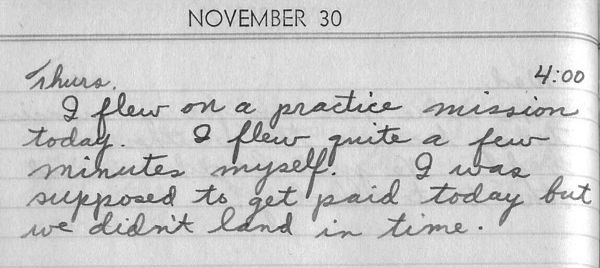 NOVEMBER 30
Thurs. 4:00
I flew on a practice mission
today. I flew quite a few
minutes myself. I was
supposed to get paid today but
we didn't land in time.